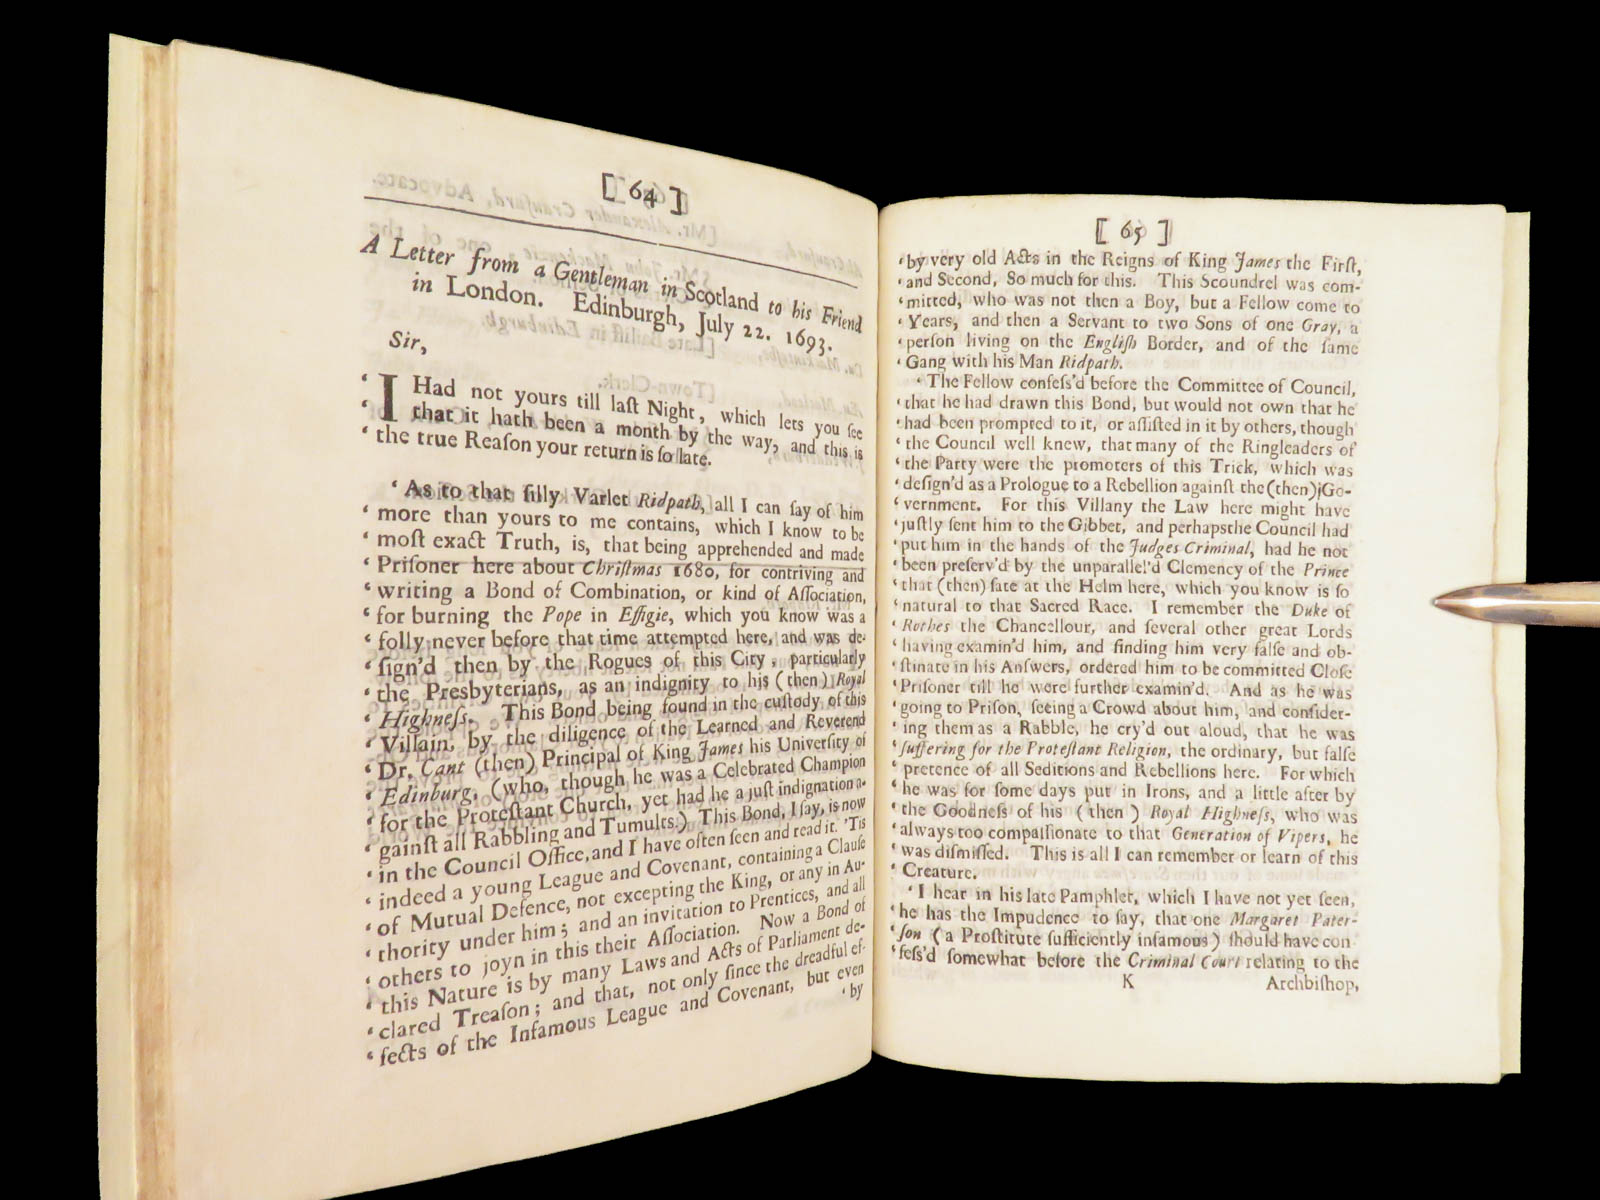 [ 64 ]
A Letter from a Gentleman in Scotland to his Friend
in London. Edinburgh, July 22. 1693.
Sir,
‘ I Had not yours till laſt Night, which lets you ſee
‘ that it hath been a month by the way, and this is
‘ the true Reaſon your return is ſo late.
‘ As to that ſilly Varlet Ridpath, all I can ſay of him
‘ more than yours to me contains, which I know to be
‘ moſt exact Truth, is, that being apprehended and made
‘ Priſoner here about Chriſtmas 1680, for contriving and
‘ writing a Bond of Combination, or kind of Aſſociation,
‘ for burning the Pope in Effigie, which you know was a
‘ folly never before that time attempted here, and was de-
‘ ſign’d then by the Rogues of this City, particularly
‘ the Presbyterians, as an indignity to his (then) Royal
‘ Highneſs. This Bond being found in the cuſtody of this
‘ Villain, by the diligence of the Learned and Reverend
‘ Dr. Cant (then) Principal of King James his Univerſity of
‘ Edinburg, (who, though he was a Celebrated Champion
‘ for the Proteſtant Church, yet had he a juſt indignation a-
‘ gainſt all Rabbling and Tumults.) This Bond, I ſay, is now
‘ in the Council Office, and I have often ſeen and read it. ’Tis
‘ indeed a young League and Covenant, containing a Clauſe
‘ of Mutual Defence, not excepting the King, or any in Au-
‘ thority under him; and an invitation to Prentices, and all
‘ others to joyn in this their Aſſociation. Now a Bond of
‘ this Nature is by many Laws and Acts of Parliament de-
‘ clared Treaſon; and that, not only ſince the dreadful ef-
‘ fects of the Infamous League and Covenant, but even
‘ by
[ 65 ]
‘ by very old Acts in the Reigns of King James the Firſt,
‘ and Second, So much for this. This Scoundrel was com-
‘ mitted, who was not then a Boy, but a Fellow come to
‘ Years, and then a Servant to two Sons of one Gray, a
‘ perſon living on the Engliſh Border, and of the ſame
‘ Gang with his Man Ridpath.
‘ The Fellow confeſs’d before the Committee of Council,
‘ that he had drawn this Bond, but would not own that he
‘ had been prompted to it, or aſſiſted in it by others, though
‘ the Council well knew, that many of the Ringleaders of
‘ the Party were the promoters of this Trick, which was
‘ deſign’d as a Prologue to a Rebellion againſt the (then) Go-
‘ vernment. For this Villany the Law here might have
‘ juſtly ſent him to the Gibbet, and perhapsthe Council had
‘ put him in the hands of the Judges Criminal, had he not
‘ been preſerv’d by the unparallel’d Clemency of the Prince
‘ that (then) ſate at the Helm here, which you know is ſo
‘ natural to that Sacred Race. I remember the Duke of
‘ Rothes the Chancellour, and ſeveral other great Lords
‘ having examin’d him, and finding him very falſe and ob-
‘ ſtinate in his Anſwers, ordered him to be committed Cloſe
‘ Priſoner till he were further examin’d. And as he was
‘ going to Priſon, ſeeing a Crowd about him, and conſider-
‘ ing them as a Rabble, he cry’d out aloud, that he was
‘ ſuffering for the Proteſtant Religion, the ordinary, but falſe
‘ pretence of all Seditions and Rebellions here. For which
‘ he was for ſome days put in Irons, and a little after by
‘ the Goodneſs of his (then) Royal Highneſs, who was
‘ always too compaſſionate to that Generation of Vipers, he
‘ was diſmiſſed. This is all I can remember or learn of this
‘ Creature.
‘ I hear in his late Pamphlet, which I have not yet ſeen,
‘ he has the Impudence to ſay, that one Margaret Pater-
‘ ſon (a Proſtitute ſufficiently infamous) ſhould have con-
‘ feſs’d ſomewhat before the Criminal Court relating to the
K Archbiſhop,